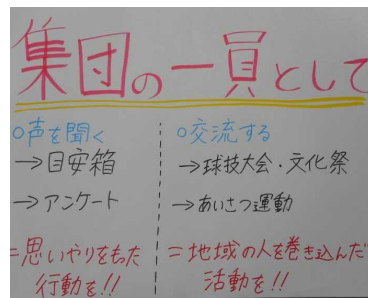 集団の一員として
○声を聞く
→目安箱
→アンケート
=思いやりをもった
行動を!!
○交流する
→球技大会・文化祭
→あいさつ運動
=地域の人を巻き込んだ
活動を!!